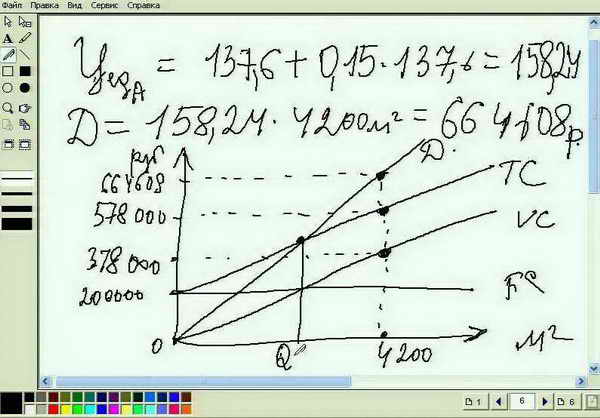 Файл Правка Вид Сервис Справка
Цед.А = 137,6 + 0,15 · 137,6 = 158,24
Д = 158,24 · 4200м² = 664608р.
руб
664608
578000
378000
200000
0
Д.
TC
VC
FC
Q
4200
м²
1
6
6